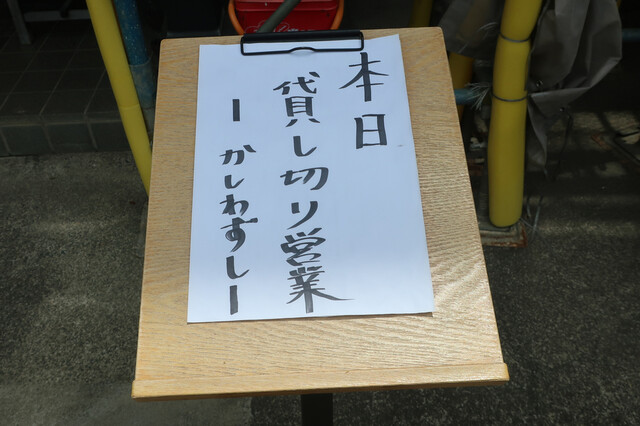 本日
貸し切り営業
ー かしわずし ー